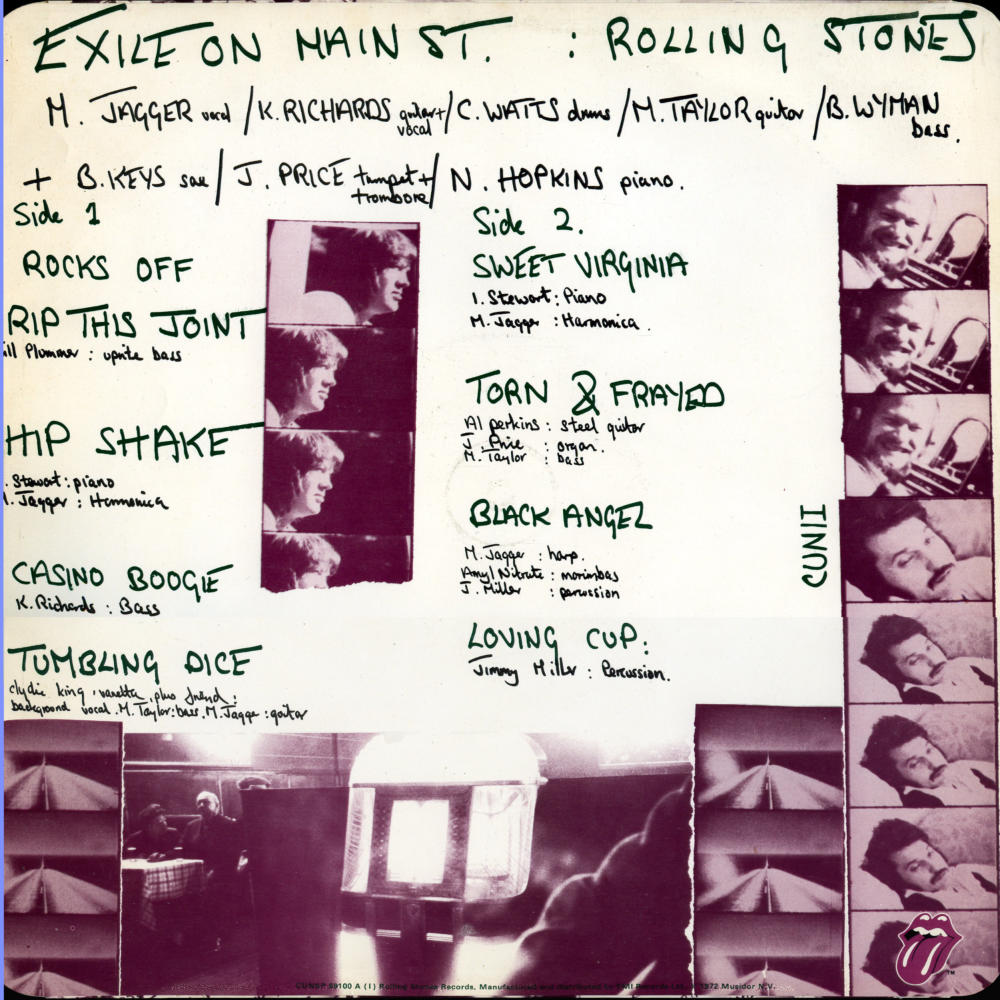 EXILE ON MAIN ST. : ROLLING STONES
M. JAGGER vocal / K. RICHARDS guitar + vocal / C. WATTS drums / M. TAYLOR guitar / B. WYMAN bass.
+ B. KEYS sax / J. PRICE trumpet + trombone / N. HOPKINS piano.
Side 1
ROCKS OFF
RIP THIS JOINT
ill Plummer : uprite bass
HIP SHAKE
. Stewart : piano
. Jagger : Harmonica
CASINO BOOGIE
K. Richards : Bass
TUMBLING DICE
clydie king, vanetta, plus friend :
background vocal. M. Taylor: bass. M. Jagger : guitar
Side 2.
SWEET VIRGINIA
I. Stewart : Piano
M. Jagger : Harmonica.
TORN & FRAYED
Al perkins : steel guitar
J. Price : organ.
M. Taylor : bass
BLACK ANGEL
M. Jagger : harp.
Amyl Nitrate : marimbas
J. Miller : percussion
LOVING CUP:
Jimmy Miller : Percussion.
CUN II
CUNSP 69100 A (I) Rolling Stones Records. Manufactured and distributed by EMI Records Ltd. 1972 Musidor N.V.
TM